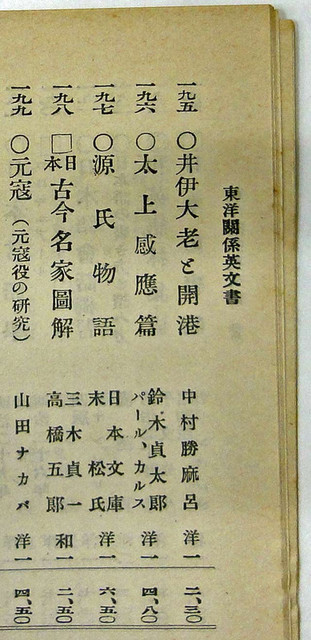 東洋關係英文書
一九五 〇井伊大老と開港 中村勝麻呂 洋一 二、三〇
一九六 〇太上感應篇 鈴木貞太郎 パール、カルス 洋一 四、八〇
一九七 〇源氏物語 日本文庫 末松氏 洋一 六、五〇
一九八 □日本古今名家圖解 三木貞一 高橋五郎 和一 二、五〇
一九九 〇元寇(元寇役の研究) 山田ナカバ 洋一 四、五〇